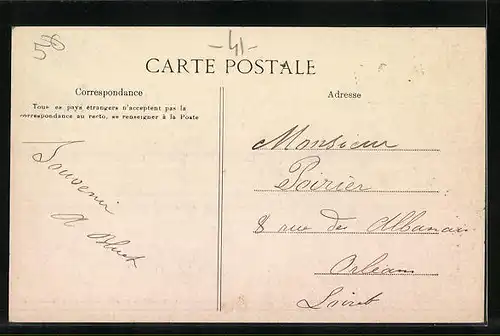 56
-41-
CARTE POSTALE
Correspondance
Tous es pays étrangers n'acceptent pas la
correspondance au recto, se renseigner à la Poste
Adresse
Souvenir
A
Monsieur
Poirier
8 rue des Albanais
Orléans
Loiret